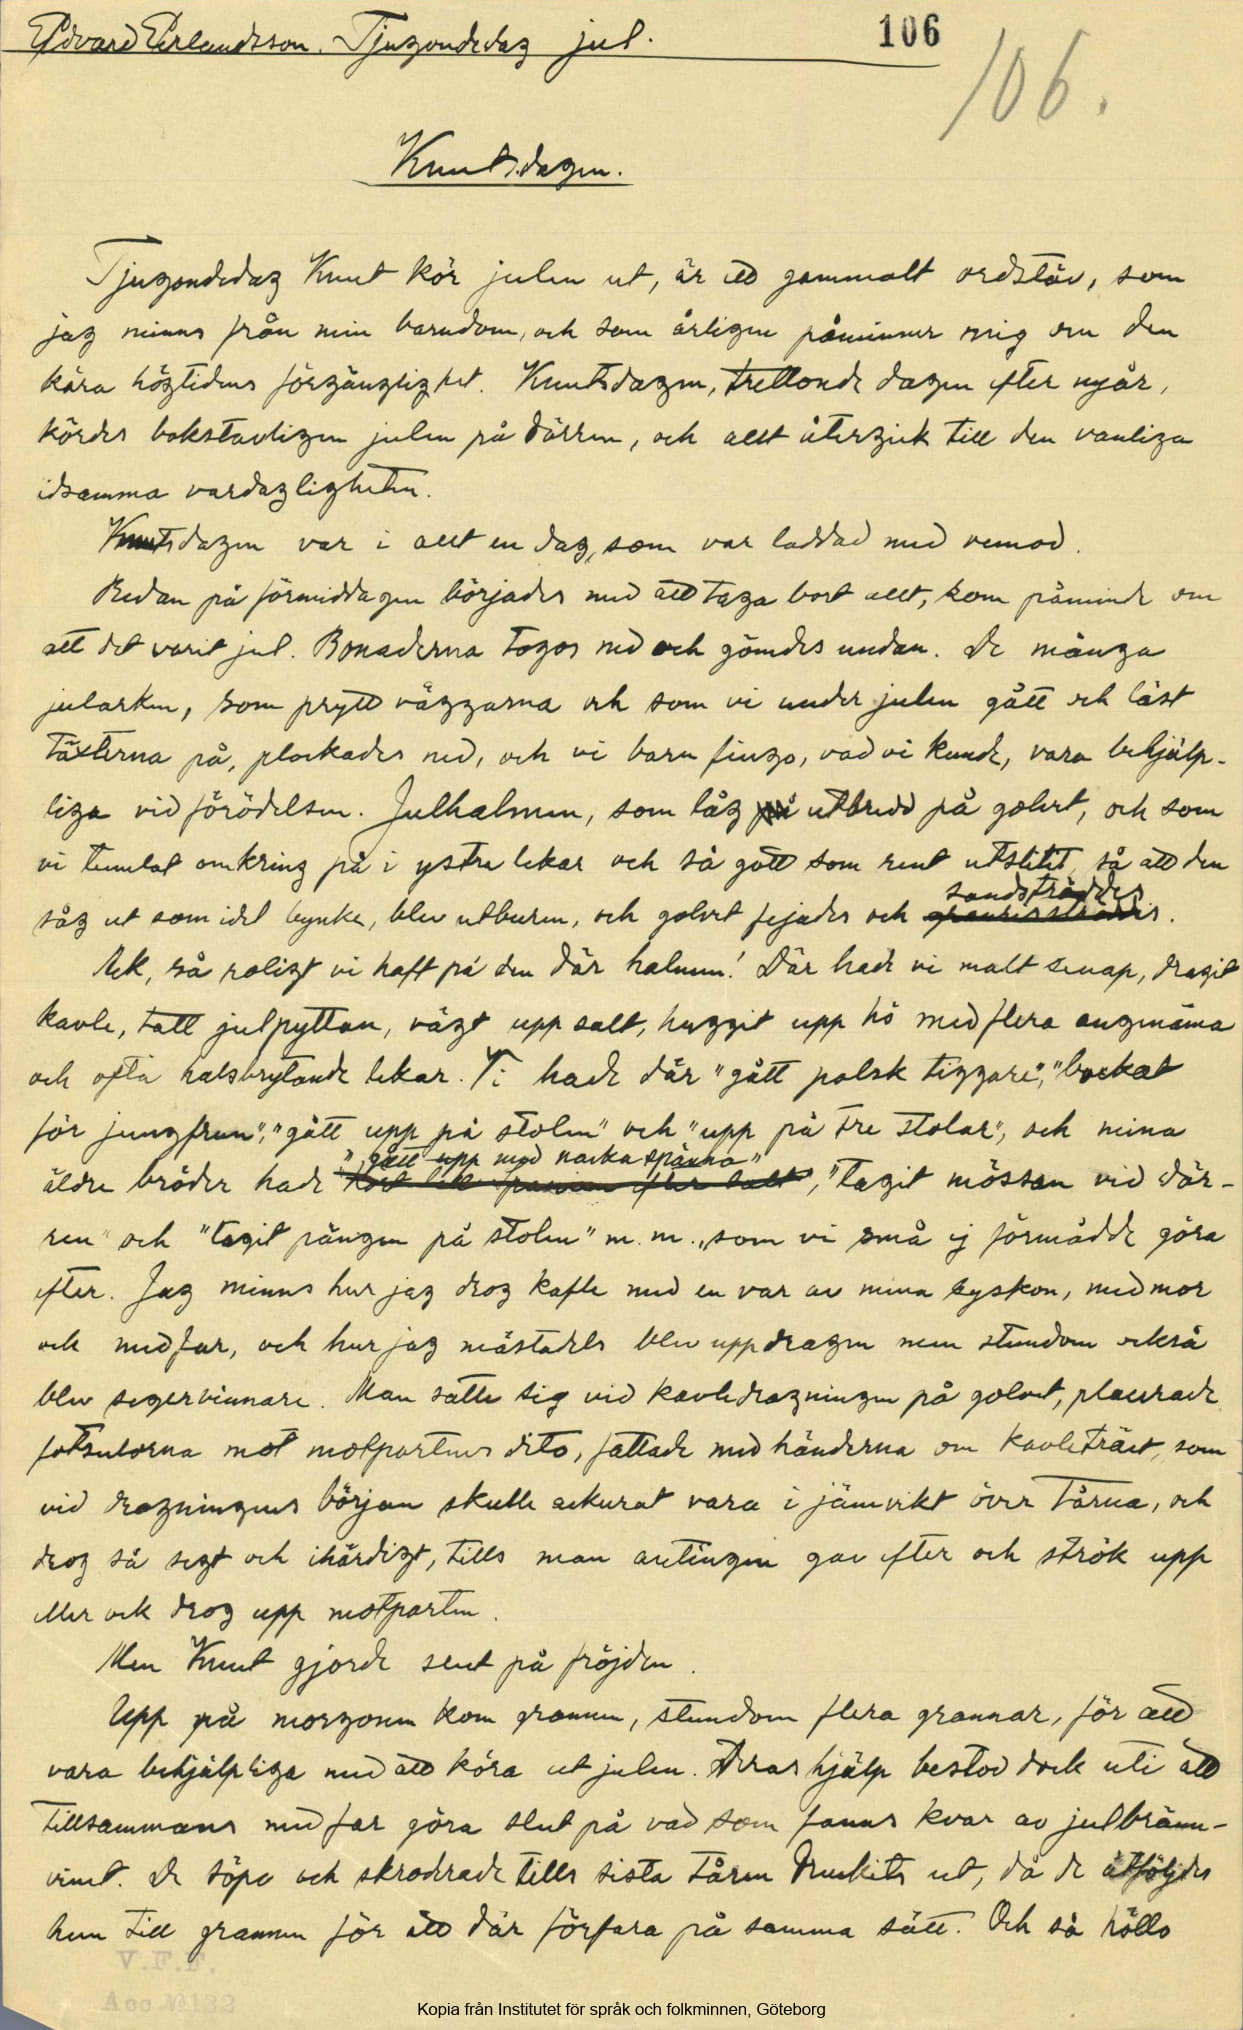 Edvard Erlandsson. Tjugondedag jul.
106
106.
Knutsdagen.
Tjugondedag Knut kör julen ut, är ett gammalt ordstäv, som
jag minns från min barndom, och som årligen påminner mig om den
kära högtidens förgänglighet. Knutsdagen, trettonde dagen efter nyår,
kördes bokstavligen julen på dörren, och allt återgick till den vanliga
idsamma vardagligheten.
Knutsdagen var i allt en dag, som var laddad med vemod.
Redan på förmiddagen börjades med att taga bort allt, som påminde om
att det varit jul. Bonaderna togos ned och gömdes undan. De många
jularken, som prytt väggarna och som vi under julen gått och läst
täxterna på, plockades ned, och vi barn fingo, vad vi kunde, vara behjälp-
liga vid förödelsen. Julhalmen, som låg på utbredd på golvet, och som
vi tumlat omkring på i ystra lekar och så gott som rent utslitit, så att den
såg ut som idel bynke, blev utburen, och golvet fejades och
sandströddes
.
Ack, så roligt vi haft på den där halmen! Där hade vi malt senap, dragit
kavle, tatt julpyttan, vägt upp salt, huggit upp hö med flera angenäma
och ofta halsbrytande lekar. Vi hade där "gått polsk tiggare", "bockat
för jungfrun", "gått upp på stolen" och "upp på tre stolar", och mina
"gått upp med nacka spänna"
äldre bröder hade , "tagit mössan vid dör-
ren" och "tagit pängen på stolen" m.m., som vi små ej förmådde göra
efter. Jag minns hur jag drog kafle med en var av mina syskon, med mor
och med far, och hur jag mästadels blev uppdragen men stundom också
blev segervinnare. Man satte sig vid kavledragningen på golvet, placerade
fotsulorna mot motpartens dito, fattade med händerna om kavleträet, som
vid dragningens början skulle ackurat vara i jämvikt över tårna, och
drog så segt och ihärdigt, tills man antingen gav efter och strök upp
eller ock drog upp motparten.
Men Knut gjorde slut på fröjden.
Upp på morgonen kom grannen, stundom flera grannar, för att
vara behjälpliga med att köra ut julen. Deras hjälp bestod dock uti att
tillsammans med far göra slut på vad som fanns kvar av julbränn-
vinet. De söpo och skrodrade tills sista tåren druckits ut, då de åtföljdes
hem till grannen för att där förfara på samma sätt. Och så höllo
V.F.F.
Acc № 132
Kopia från Institutet för språk och folkminnen, Göteborg